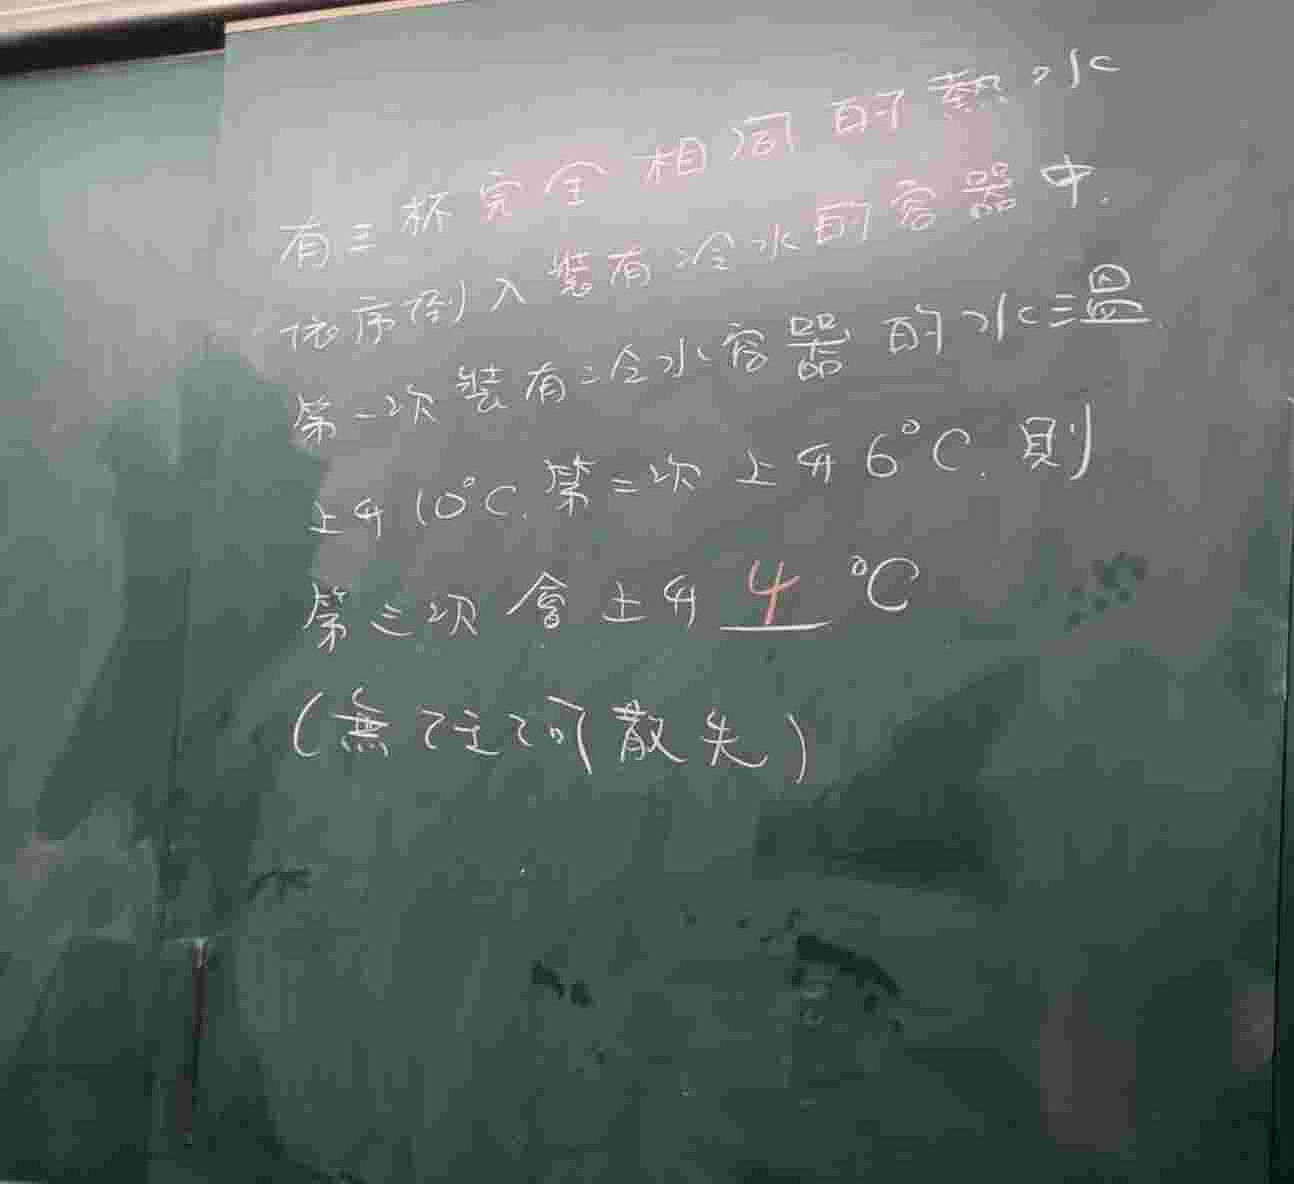 有三杯完全相同的熱水
依序倒入裝有冷水的容器中.
第一次裝有冷水容器的水溫
上升10°C.第二次上升6°C.則
第三次會上升 4 °C
(無任何散失)